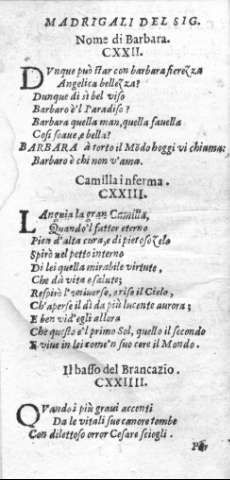 MADRIGALI DEL SIG.
Nome di Barbara.
CXXII.
DVnque può star con barbara fierezza
Angelica bellezza?
Dunque di sì bel viso
Barbaro è'l Paradiso?
Barbara quella man, quella fauella
Così soaue, e bella?
BARBARA à torto il Mõdo hoggi vi chiama:
Barbaro è chi non v'ama.
Camilla inferma.
CXXIII.
LAnguia la gran Camilla,
Quando'l fattor eterno
Pien d'alta cura, e di pietoso zelo
Spirò nel petto interno
Di lei quella mirabile virtute,
Che dà vita e salute;
Respirò l'vniuerso, e rise il Cielo,
Ch'aperse il dì da più lucente aurora;
E ben vid'egli allora
Che questo è'l primo Sol, quello il secondo
E viue in lei come'n suo core il Mondo.
Il basso del Brancazio.
CXXIIII.
QVando i più graui accenti
Da le vitali sue canore tombe
Con dilettoso orror Cesare sciogli.